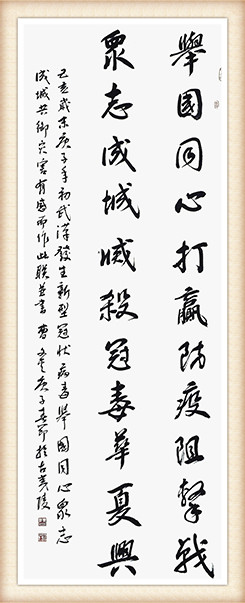 舉國同心打贏防疫阻擊戰
眾志成城滅殺冠毒華夏興
己亥歲末庚子年初武漢發生新型冠狀病毒舉國同心眾志
成城共御灾害有感而作此联并書 曹 庚子春節於古夷陵